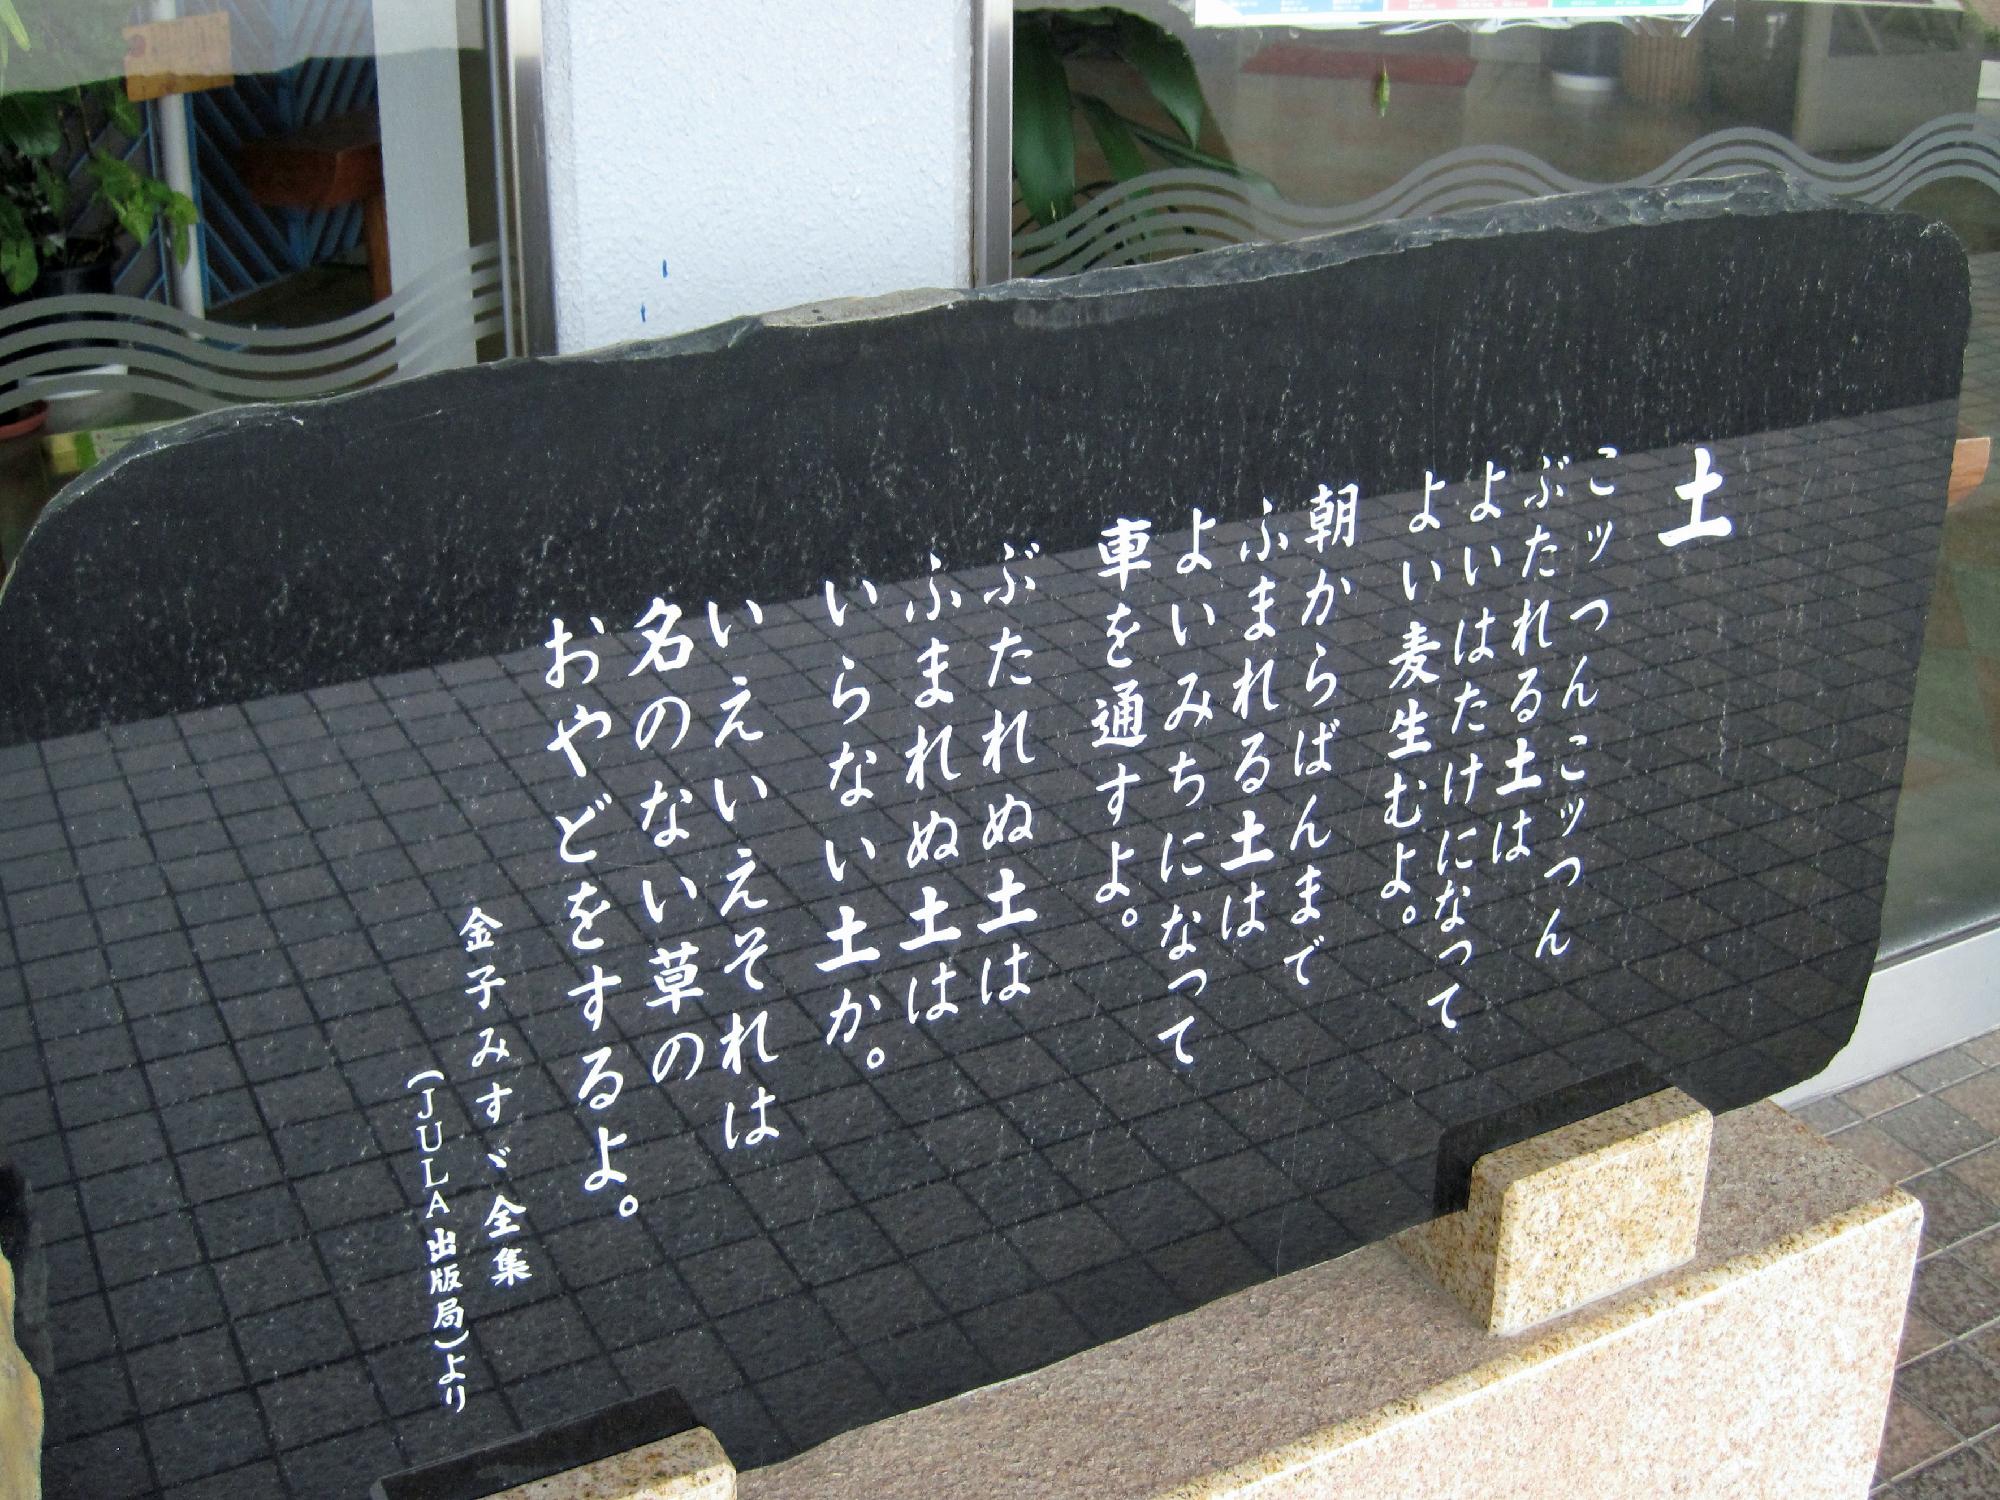 土
こッつんこッつん
ぶたれる土は
よいはたけになって
よい麦生むよ。
朝からばんまで
ふまれる土は
よいみちになって
車を通すよ。
ぶたれぬ土は
ふまれぬ土は
いらない土か。
いえいえそれは
名のない草の
おやどをするよ。
金子みすゞ全集
(JULA出版局)より